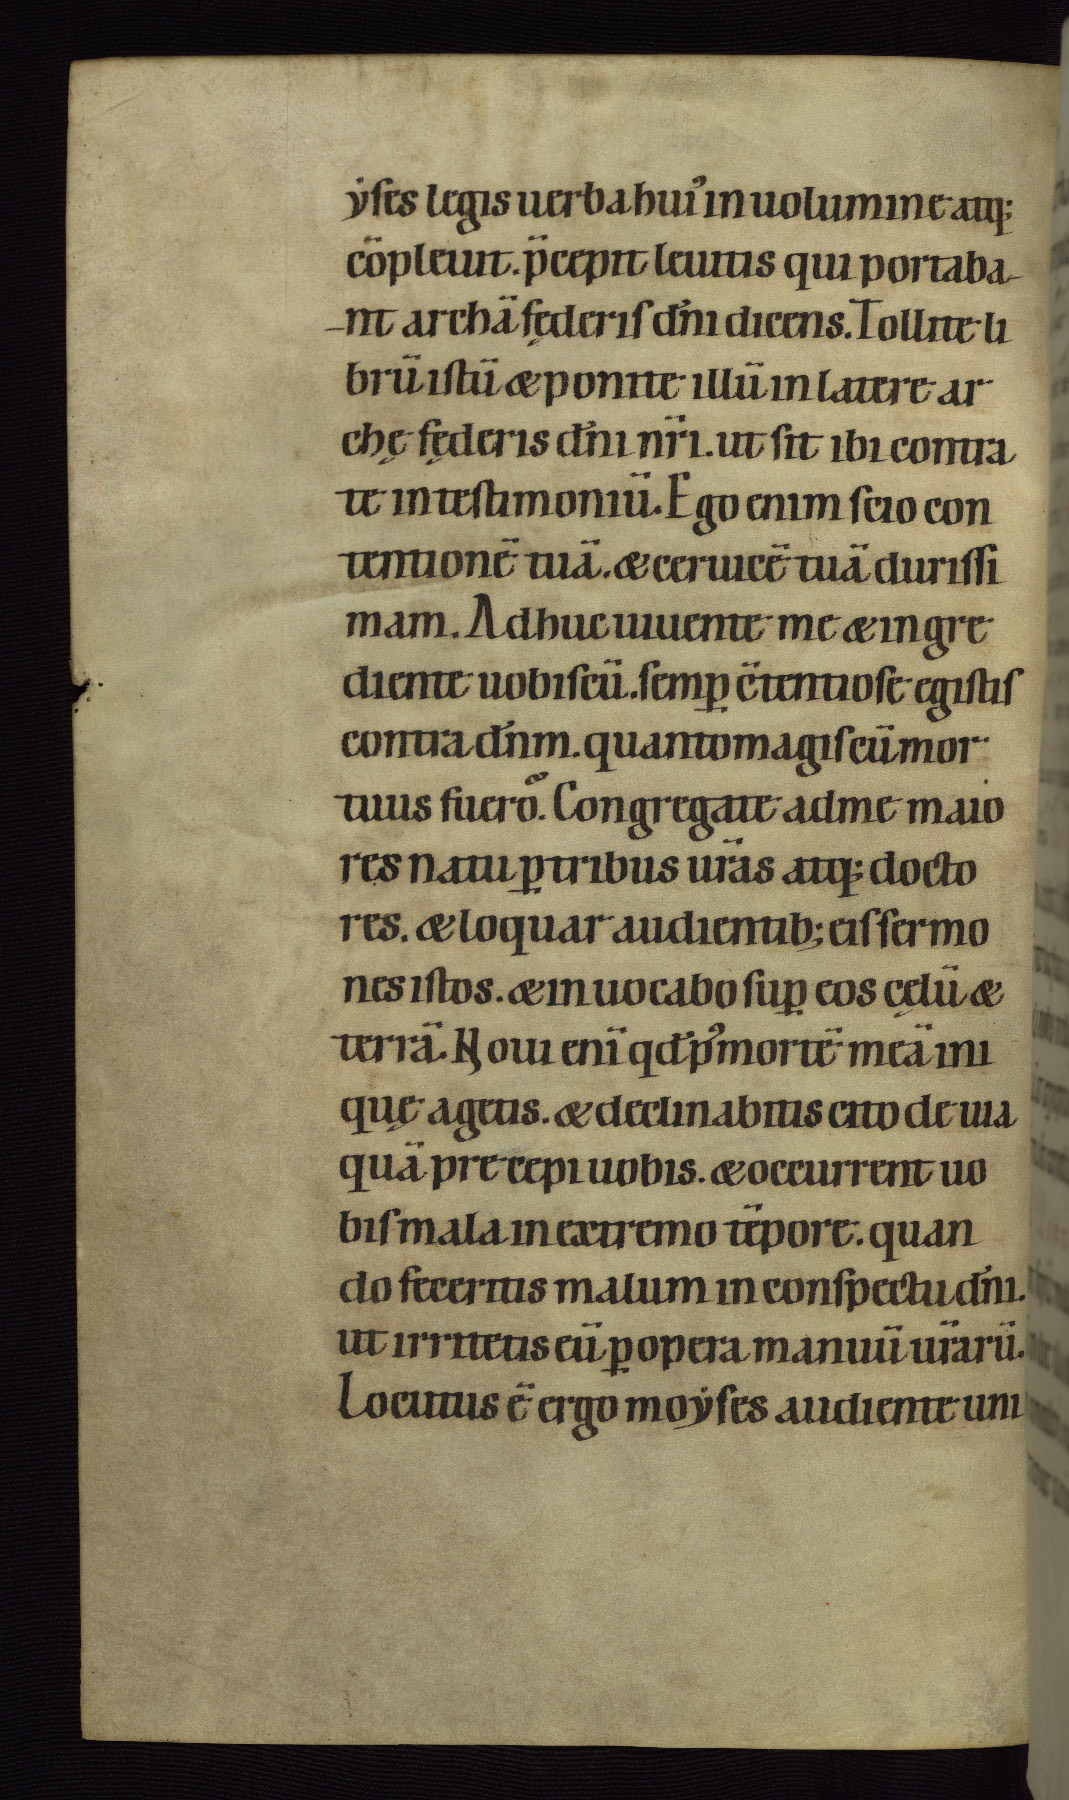 ẏses legis uerba hui᾽ in uolumine atq;
cōpleuit. p̄cepit leuitis qui portaba-
-nt archā fęderis dn̄i dicens. Tollite li
brū istū & ponite illū in latere ar
chę fęderis dn̄i nr̄i. ut sit ibi contra
te in testimoniū. Ego enim scio con
tentionē tuā. & ceruicē tuā durissi
mam. Adhuc uiuente me & ingre
diente uobiscū. semꝑ c̄tentiose egistis
contra dn̄m. quanto magis cū mor
tuus fuero. Congregate ad me maio
res natu ꝑ tribus ur̄as atq; docto
res. & loquar audientib; eis sermo
nes istos. & inuocabo suꝑ eos cęlū &
terrā. Noui enī qđ p᾽ mortē meā ini
quę agetis. & declinabitis cito de uia
quā precepi uobis. & occurrent uo
bis mala in extremo tēpore. quan
do feceritis malum in conspectu dn̄i.
ut irritetis eū ꝑ opera manuū ur̄arū.
Locutus ē ergo moẏses audiente uni